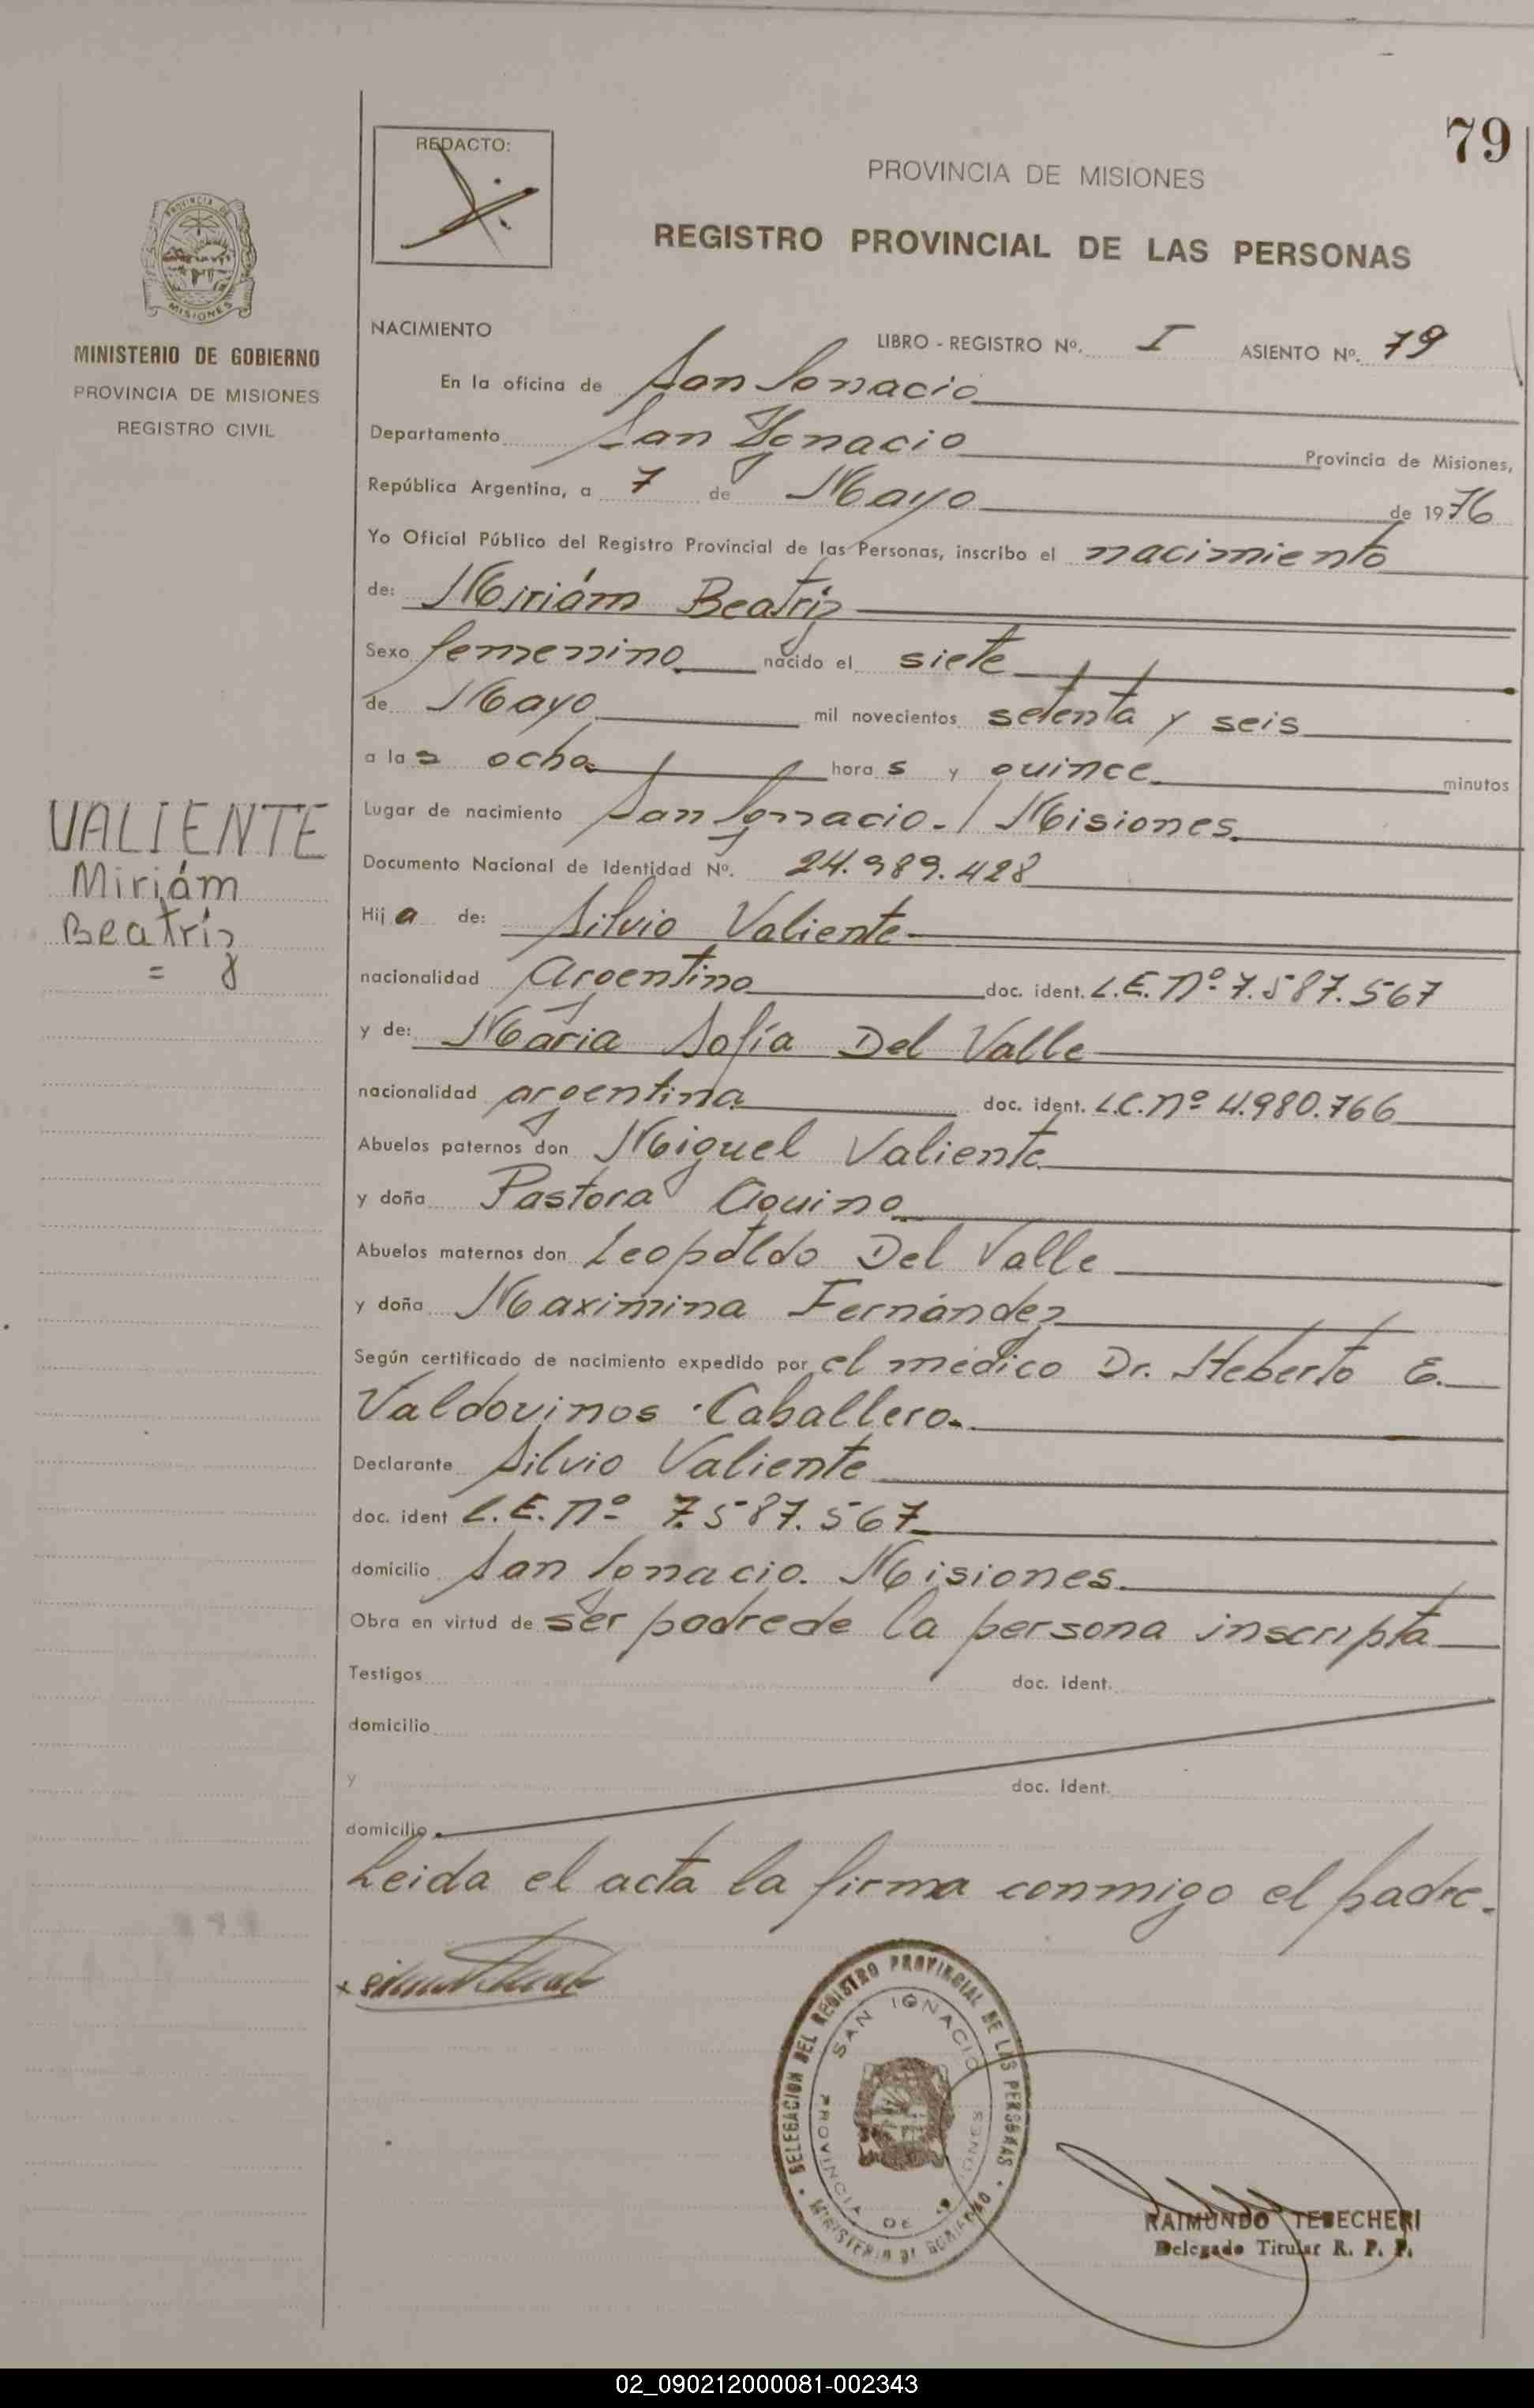 79
REDACTO:
PROVINCIA DE MISIONES
REGISTRO PROVINCIAL DE LAS PERSONAS
MISIONES
MINISTERIO DE GOBIERNO
PROVINCIA DE MISIONES
REGISTRO CIVIL
NACIMIENTO LIBRO - REGISTRO Nº. I ASIENTO Nº. 79
En la oficina de San Ignacio
Departamento San Ignacio Provincia de Misiones,
República Argentina, a 7 de Mayo de 1976
Yo Oficial Público del Registro Provincial de las Personas, inscribo el nacimiento
de: Miriám Beatríz
Sexo femenino nacido el siete
de Mayo mil novecientos setenta y seis
a las ocho horas y quince minutos
Lugar de nacimiento San Ignacio-/Misiones.
Documento Nacional de Identidad Nº. 24.989.428
VALIENTE
Miriám
Beatríz
=
Hija de: Silvio Valiente
nacionalidad Argentino doc. ident. L.E. Nº 7.587.567
y de: María Sofía Del Valle
nacionalidad argentina doc. ident. L.C. nº 4.980.766
Abuelos paternos don Miguel Valiente
y doña Pastora Aquino
Abuelos maternos don Leopoldo Del Valle
y doña Maximina Fernández
Según certificado de nacimiento expedido por el médico Dr. Heberto E.
Valdovinos Caballero.
Declarante Silvio Valiente
doc. ident L.E. nº 7.587.567
domicilio San Ignacio. Misiones.
Obra en virtud de ser padre de la persona inscripta
Testigos doc. ident.
domicilio
y doc. Ident.
domicilio
Leida el acta la firma conmigo el padre.
DELEGACION DEL REGISTRO PROVINCIAL DE LAS PERSONAS
SAN IGNACIO
PROVINCIA DE MISIONES
MINISTERIO DE GOBIERNO
RAIMUNDO TEBECHERI
Delegado Titular R. P. P.
02_090212000081-002343